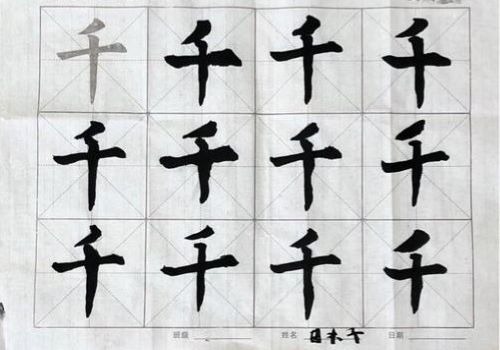 千千千千
千千千千
千千千千
班级 姓名 日期